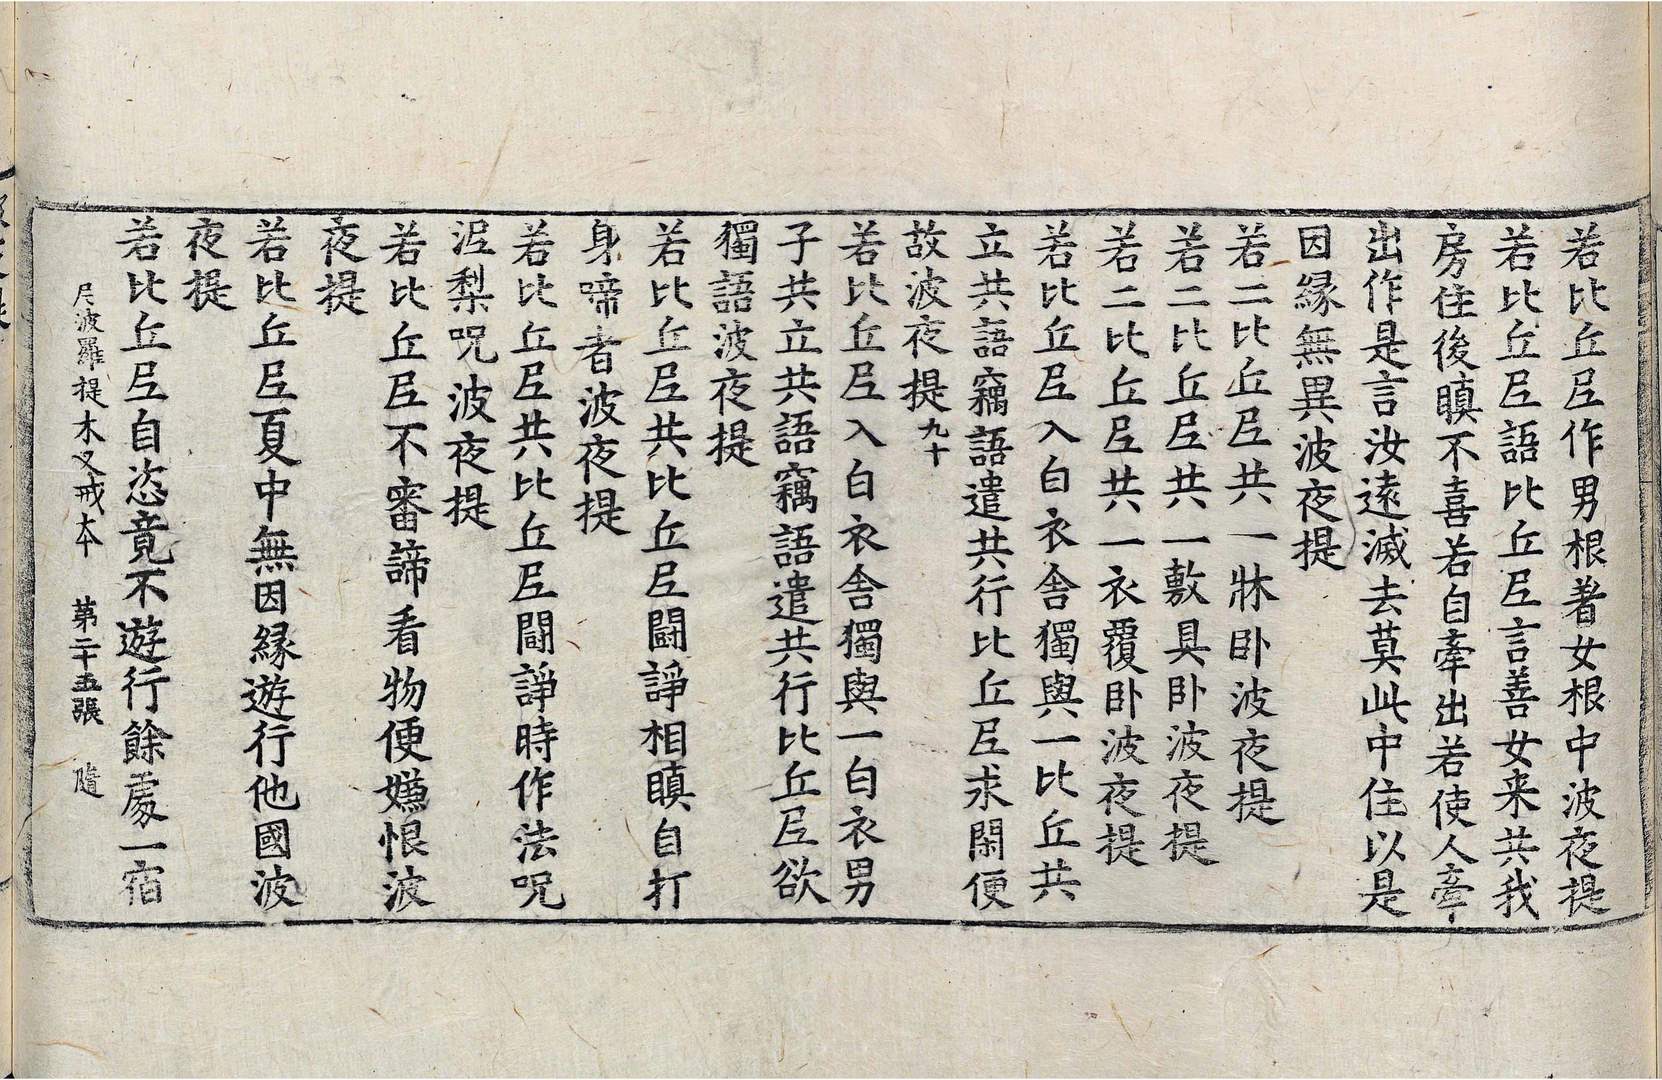 若比丘尼作男根著女根中波夜提
若比丘尼語比丘尼言善女来共我
房住後瞋不喜若自牽出若使人牽
出作是言汝遠滅去莫此中住以是
因縁無異波夜提
若二比丘尼共一牀卧波夜提
若二比丘尼共一敷具卧波夜提
若二比丘尼共一衣覆卧波夜提
若比丘尼入白衣舎獨與一比丘共
立共語竊語遣共行比丘尼求閑便
故波夜提九十
若比丘尼入白衣舎獨與一白衣男
子共立共語竊語遣共行比丘尼欲
獨語波夜提
若比丘尼共比丘尼闘諍相瞋自打
身啼者波夜提
若比丘尼共比丘尼闘諍時作法呪
泥梨呪波夜提
若比丘尼不審諦看物便嫌恨波
夜提
若比丘尼夏中無因縁遊行他國波
夜提
尼波羅提木叉戒本 第二十五張 隨
若比丘尼自恣竟不遊行餘處一宿